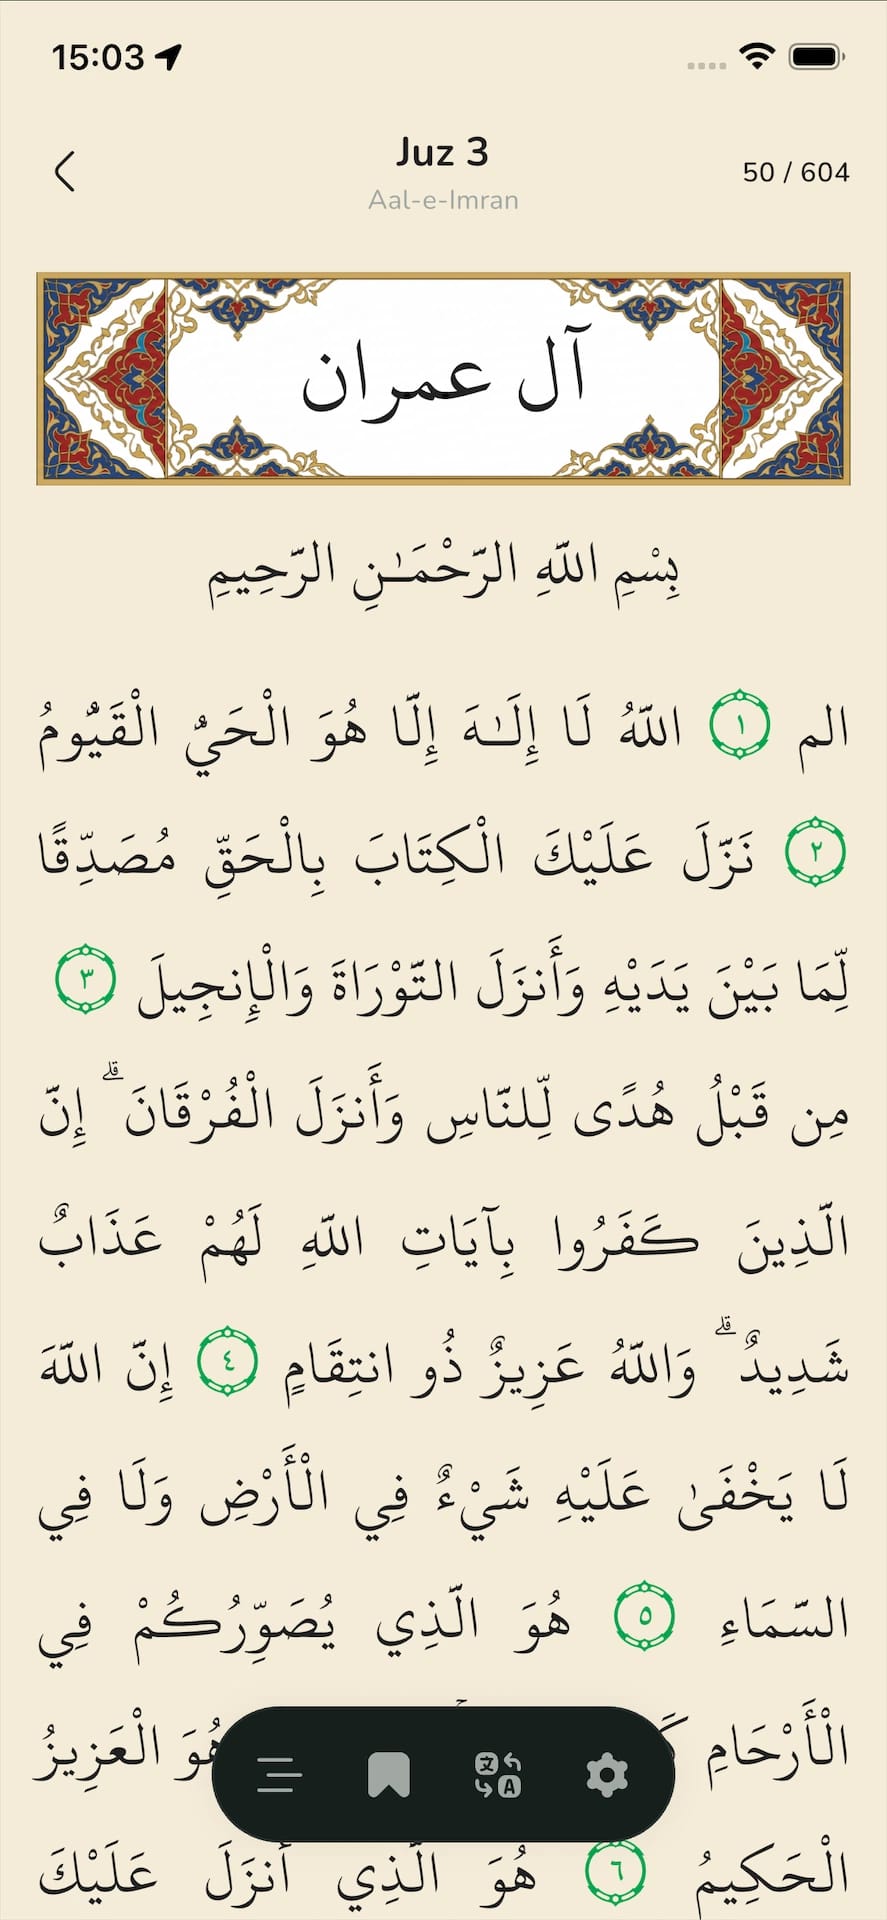 15:03
Juz 3
50 / 604
Aal-e-Imran
آل عمران
بِسْمِ اللَّهِ الرَّحْمَـٰنِ الرَّحِيمِ
الم ١ اللَّهُ لَا إِلَـٰهَ إِلَّا هُوَ الْحَيُّ الْقَيُّومُ
٢ نَزَّلَ عَلَيْكَ الْكِتَابَ بِالْحَقِّ مُصَدِّقًا
لِّمَا بَيْنَ يَدَيْهِ وَأَنزَلَ التَّوْرَاةَ وَالْإِنجِيلَ ٣
مِن قَبْلُ هُدًى لِّلنَّاسِ وَأَنزَلَ الْفُرْقَانَ ۗ إِنَّ
الَّذِينَ كَفَرُوا بِآيَاتِ اللَّهِ لَهُمْ عَذَابٌ
شَدِيدٌ ۗ وَاللَّهُ عَزِيزٌ ذُو انتِقَامٍ ٤ إِنَّ اللَّهَ
لَا يَخْفَىٰ عَلَيْهِ شَيْءٌ فِي الْأَرْضِ وَلَا فِي
السَّمَاءِ ٥ هُوَ الَّذِي يُصَوِّرُكُمْ فِي
الْأَرْحَامِ هُوَ الْعَزِيزُ
الْحَكِيمُ ٦ هُوَ الَّذِي أَنزَلَ عَلَيْكَ